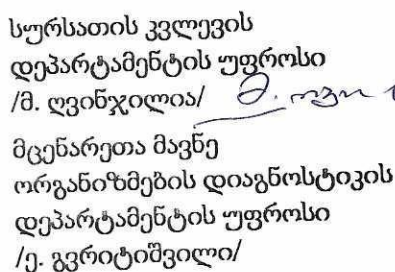 სურსათის კვლევის
დეპარტამენტის უფროსი
/მ. ღვინჯილია/
მცენარეთა მავნე
ორგანიზმების დიაგნოსტიკის
დეპარტამენტის უფროსი
/ე. გვრიტიშვილი/